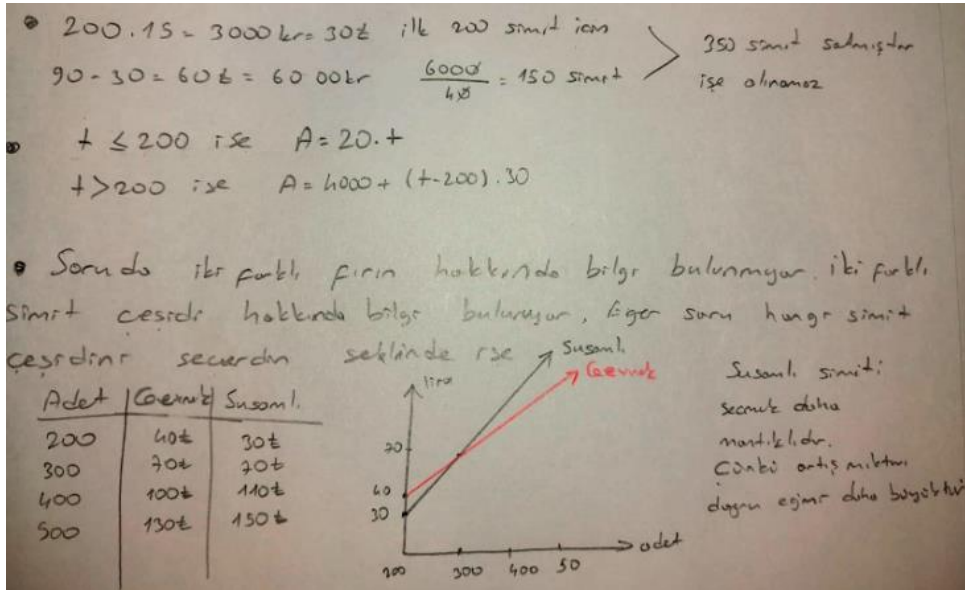 200.15 = 3000 kr = 30₺ ilk 200 simit icin
90 - 30 = 60₺ = 60 00kr 6000/40 = 150 simit
350 simit satmıştır
işe alınamaz
t ≤ 200 ise A = 20.t
t > 200 ise A = 4000 + (t-200).30
Soruda iki farklı fırın hakkında bilgi bulunmıyor. iki farklı
simit cesidi hakkında bilgi bulunuyor. Eger soru hangi simit
çeşidini secerdin seklinde ise
Adet Gevrek Susamlı
200 40₺ 30₺
300 70₺ 70₺
400 100₺ 110₺
500 130₺ 150₺
Susamlı
Gevrek
lira
70
40
30
200 300 400 50 adet
Susamlı simiti
secmek daha
mantıklıdır.
Çünkü artış miktarı
dogru egimi daha büyüktür